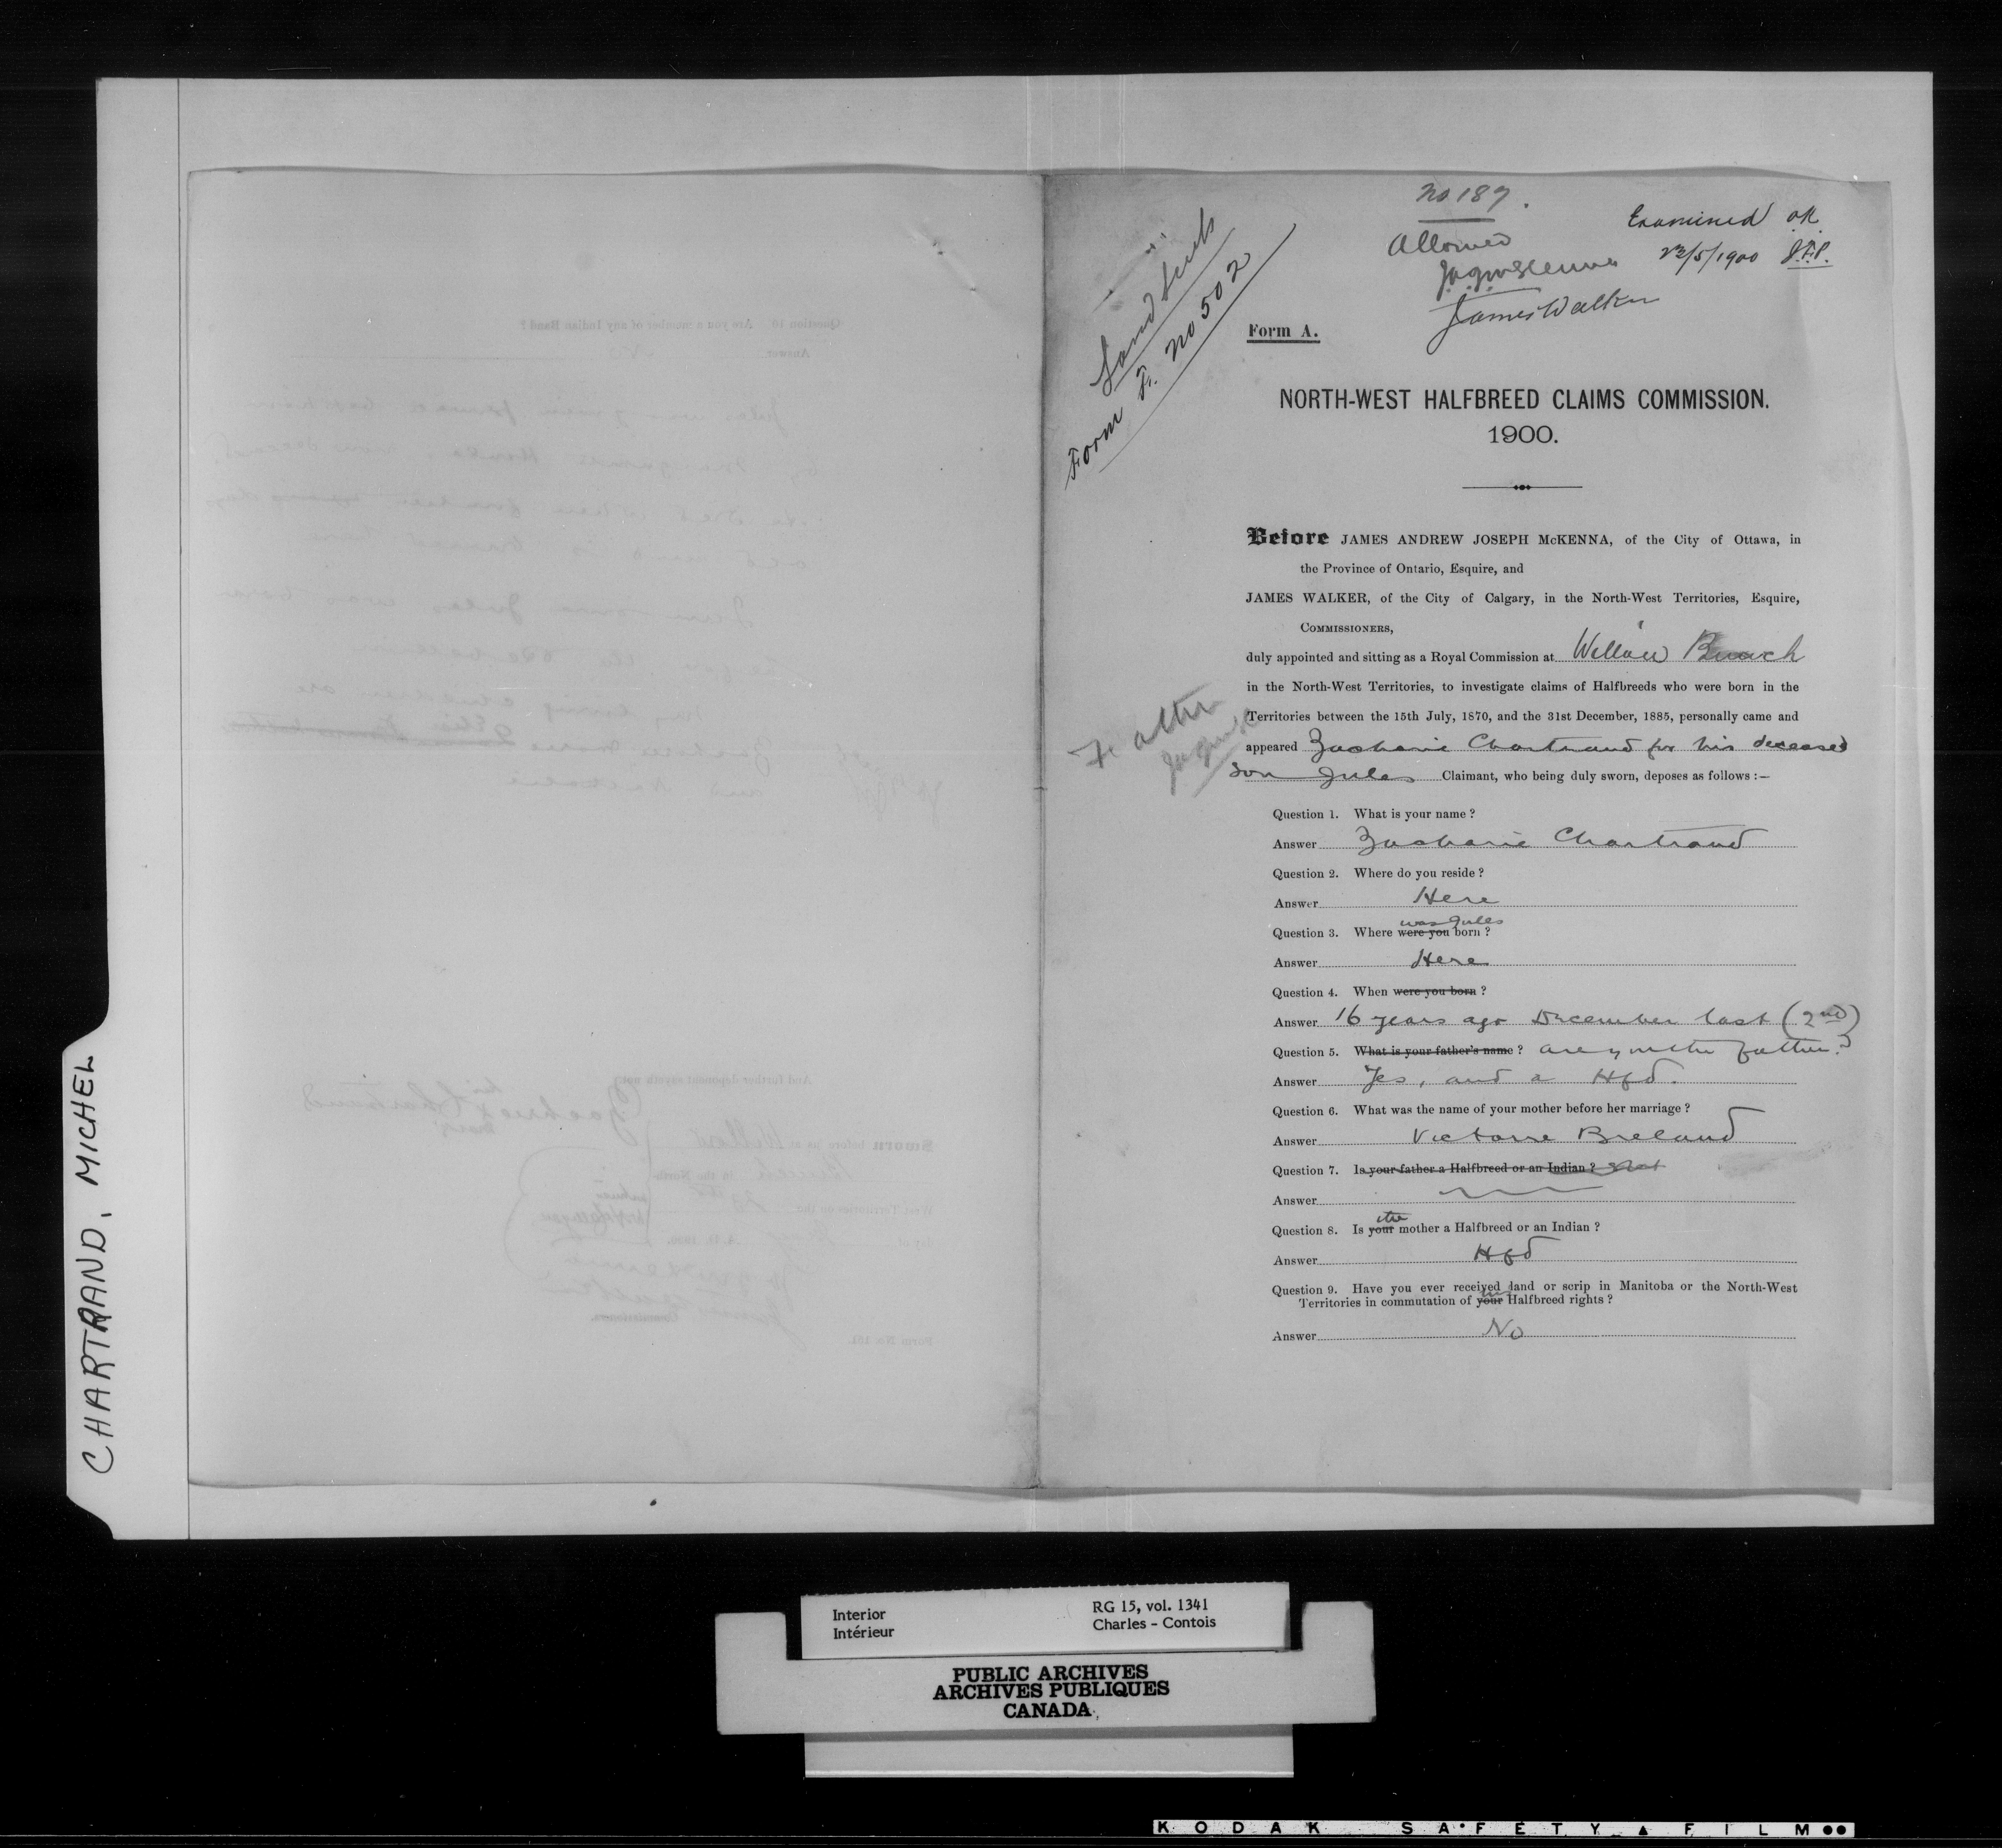 CHARTRAND, MICHEL
No 187.
Allowed
JAJMcKenna
James Walker
Examined OK
23/5/1900 J.F.P.
Land Scrip
Form F. No 502
Form A.
NORTH-WEST HALFBREED CLAIMS COMMISSION.
1900.
Before JAMES ANDREW JOSEPH McKENNA, of the City of Ottawa, in
the Province of Ontario, Esquire, and
JAMES WALKER, of the City of Calgary, in the North-West Territories, Esquire,
COMMISSIONERS,
duly appointed and sitting as a Royal Commission at Willow Bunch
in the North-West Territories, to investigate claims of Halfbreeds who were born in the
Territories between the 15th July, 1870, and the 31st December, 1885, personally came and
appeared Zacharie Chartrand for his deceased
son Jules Claimant, who being duly sworn, deposes as follows :—
Father
Question 1. What is your name ?
Answer Zacharie Chartrand
Question 2. Where do you reside ?
Answer Here
was Jules
Question 3. Where were you born ?
Answer Here
Question 4. When were you born ?
Answer 16 years ago December last (2nd)
Question 5. What is your father's name ? are you the father?
Answer Yes, and a Hfd.
Question 6. What was the name of your mother before her marriage ?
Answer Victorie Breland
Question 7. Is your father a Halfbreed or an Indian ?
Answer
the
Question 8. Is your mother a Halfbreed or an Indian ?
Answer Hfd
Question 9. Have you ever received land or scrip in Manitoba or the North-West
Territories in commutation of your Halfbreed rights ?
Answer No
Interior
Intérieur
RG 15, vol. 1341
Charles - Contois
PUBLIC ARCHIVES
ARCHIVES PUBLIQUES
CANADA
KODAK SAFETY ▲ FILM ●●